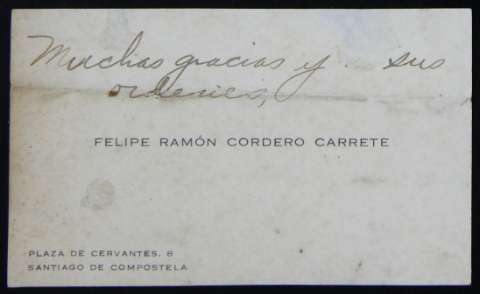 Muchas gracias y sus
ordenes,
FELIPE RAMÓN CORDERO CARRETE
PLAZA DE CERVANTES, 8
SANTIAGO DE COMPOSTELA